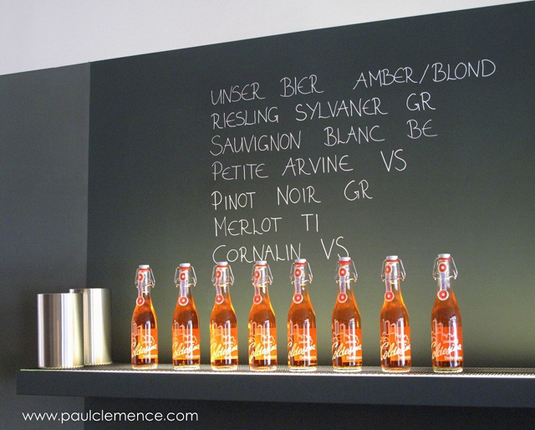 UNSER BIER AMBER/BLOND
RIESLING SYLVANER GR
SAUVIGNON BLANC BE
PETITE ARVINE VS
PINOT NOIR GR
MERLOT TI
CORNALIN VS
www.paulclemence.com